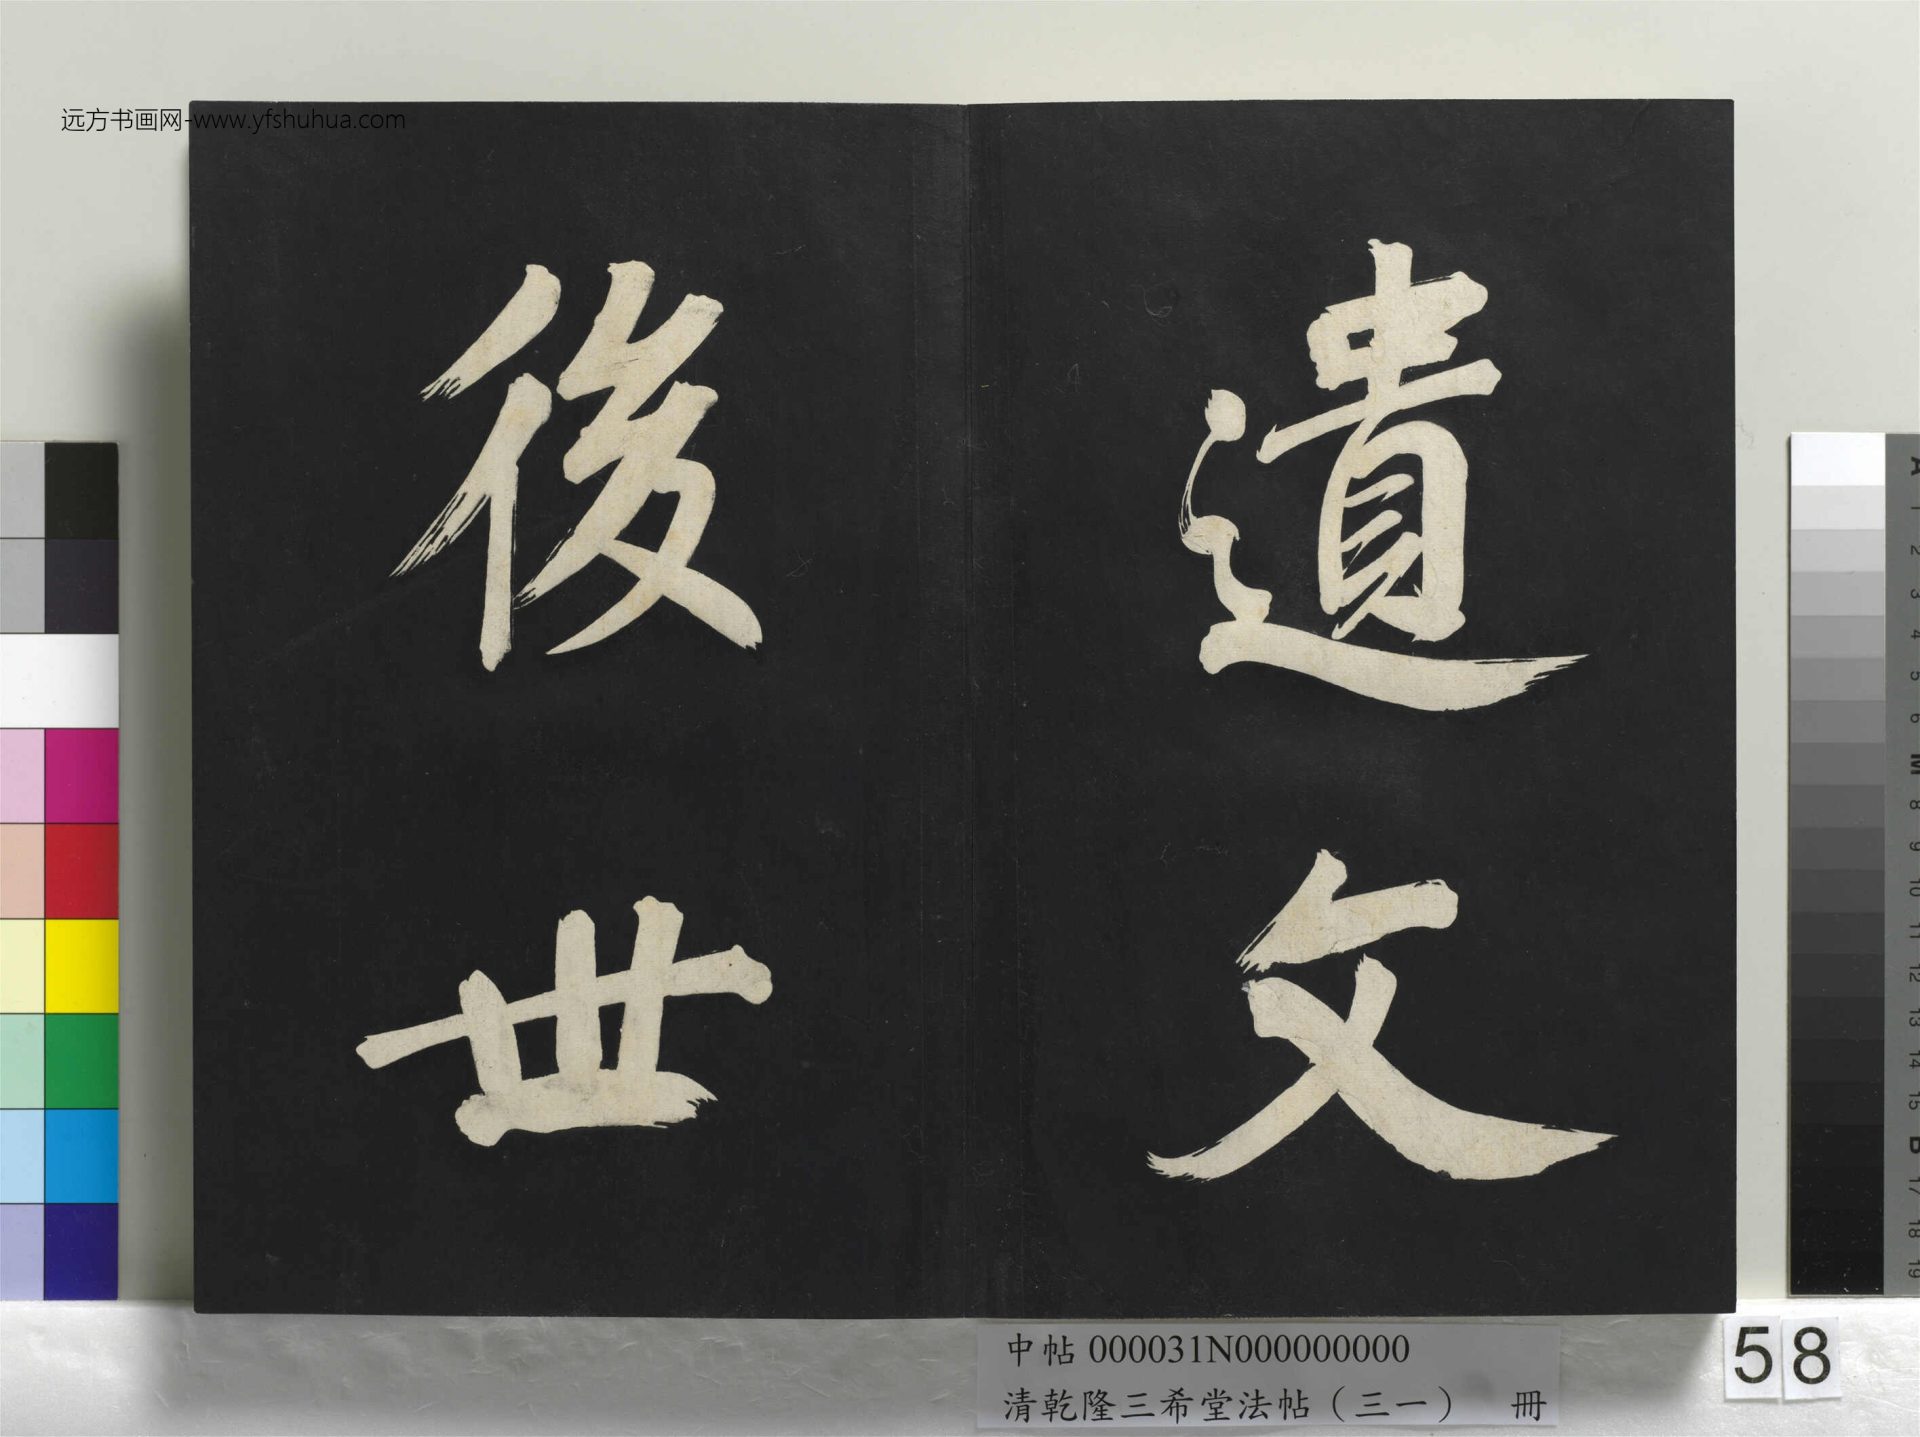 远方书画网-www.yfshuhua.com
遺文
後世
中帖 000031N000000000
清乾隆三希堂法帖（三一） 冊
58
A
1
2
3
4
5
6
M
8
9
10
11
12
13
14
15
B
17
18
19